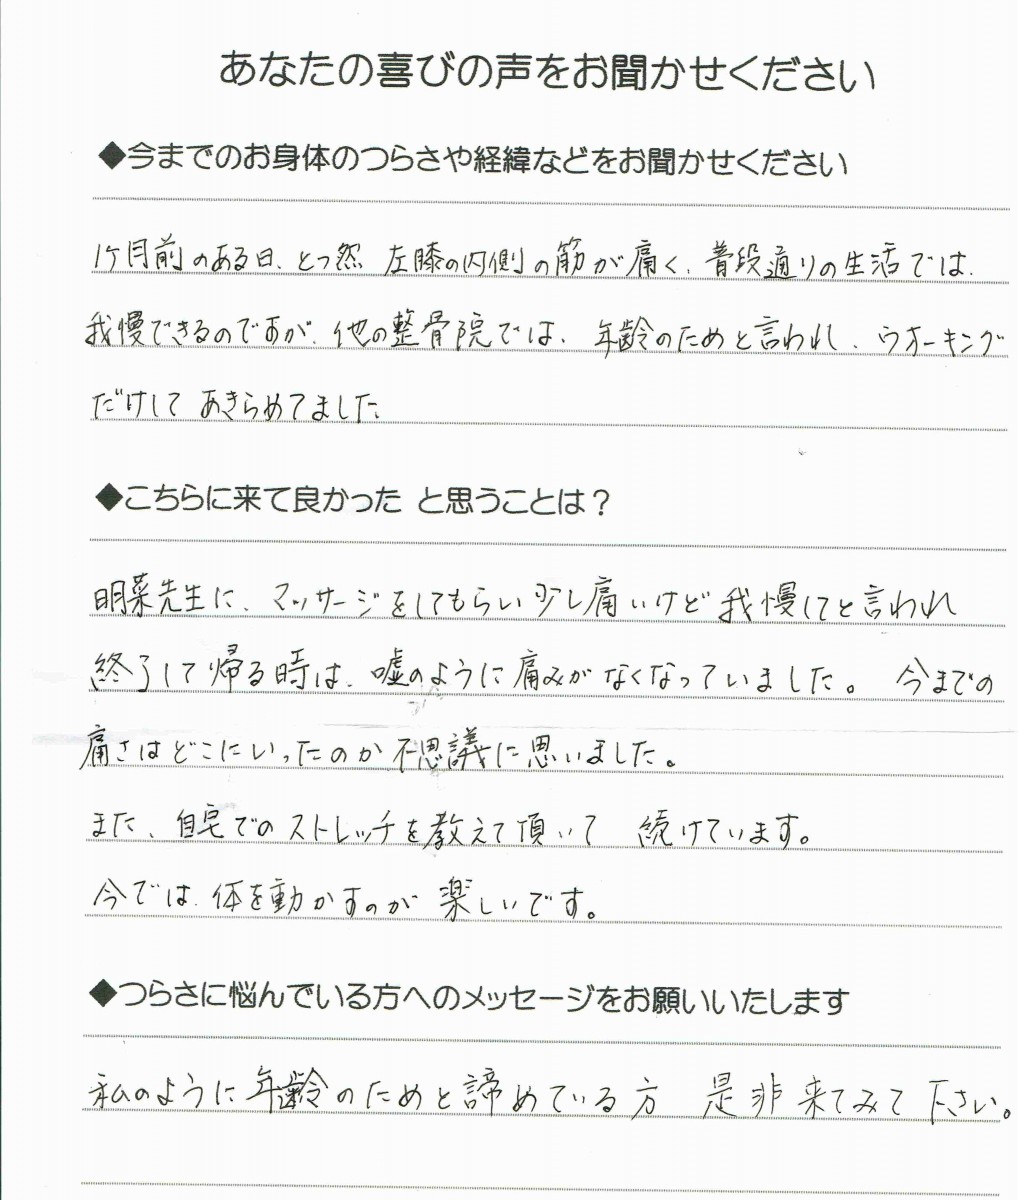 あなたの喜びの声をお聞かせください
◆今までのお身体のつらさや経緯などをお聞かせください
1ケ月前のある日、とつ然 左膝の内側の筋が痛く、普段通りの生活では、
我慢できるのですが、他の整骨院では、年齢のためと言われ、ウオーキング
だけして あきらめてました
◆こちらに来て良かった と思うことは？
明菜先生に、マッサージをしてもらい少し痛いけど我慢してと言われ
終了して帰る時は、嘘のように痛みがなくなっていました。 今までの
痛さはどこにいったのか不思議に思いました。
また、自宅でのストレッチを教えて頂いて 続けています。
今では、体を動かすのが 楽しいです。
◆つらさに悩んでいる方へのメッセージをお願いいたします
私のように年齢のためと諦めている方 是非来てみて下さい。